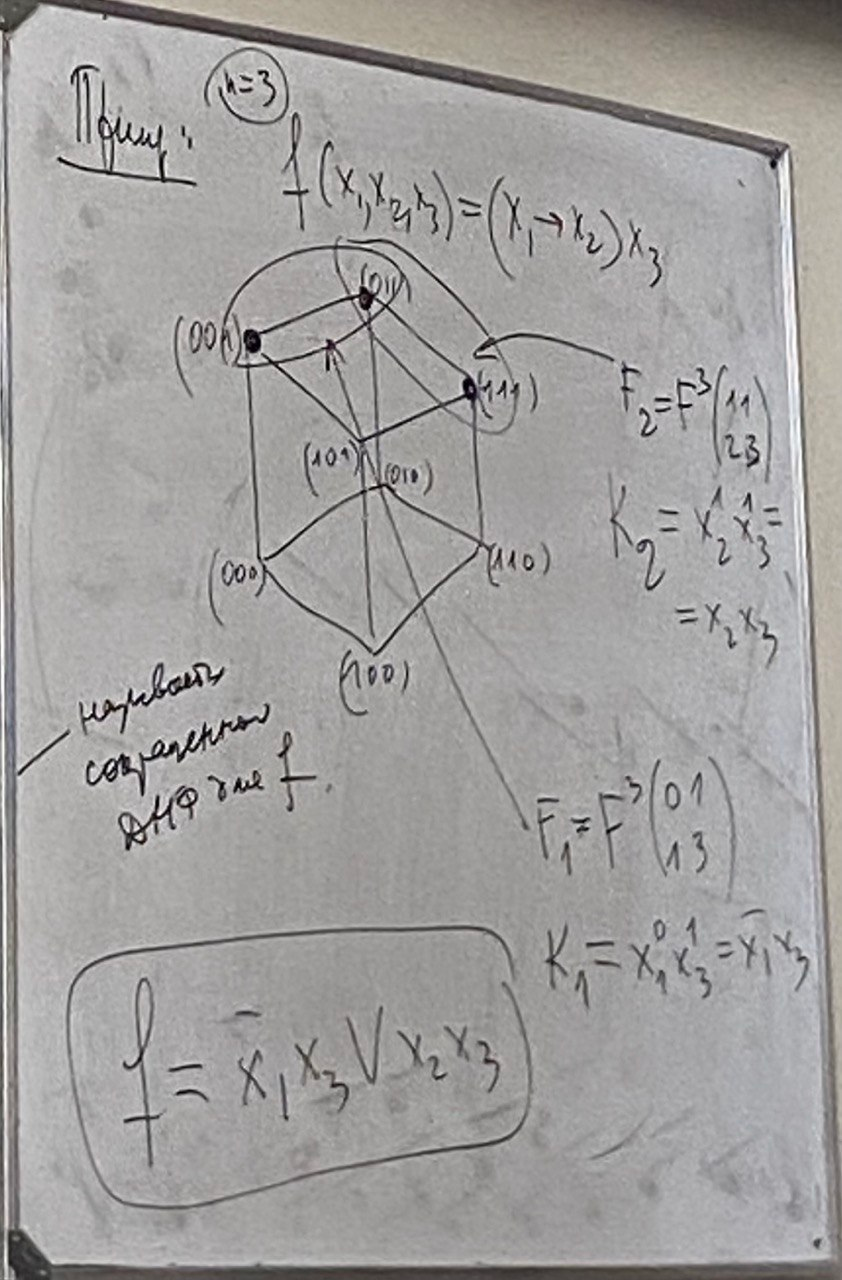 Прим: n=3
f(x₁,x₂,x₃)=(x₁→x₂)x₃
(011)
(001)
(111)
(101)
(010)
(000)
(110)
(100)
F₂=F³(11
23)
K₂=x₂¹x₃¹=
=x₂x₃
сокращенной
ДНФ для f.
F₁=F³(01
13)
K₁=x₁⁰x₃¹=x̄₁x₃
f=x̄₁x₃∨x₂x₃